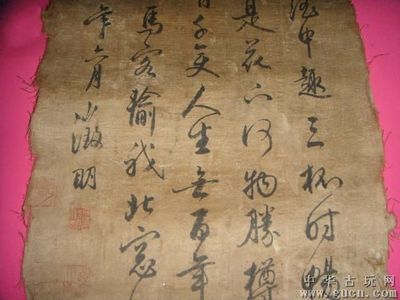 中趣三杯时
是花下何物勝樽
人生無百年
馬客喻我北窓
年六月徵明
中华古玩网
www.gucn.com